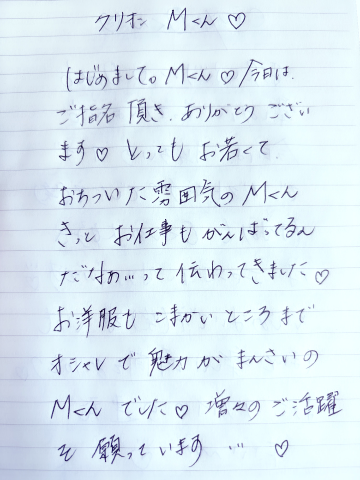 クリオン Mくん♡
はじめまして。Mくん♡今日は、
ご指名 頂き、ありがとう ござい
ます♡ とっても お若くて、
おちついた 雰囲気の Mくん
きっと お仕事も がんばってるん
だなぁ…って 伝わってきました♡
お洋服も こまかい ところまで
オシャレで 魅力が まんさいの
Mくん でした♡ 増々の ご活躍
を 願っています … ♡